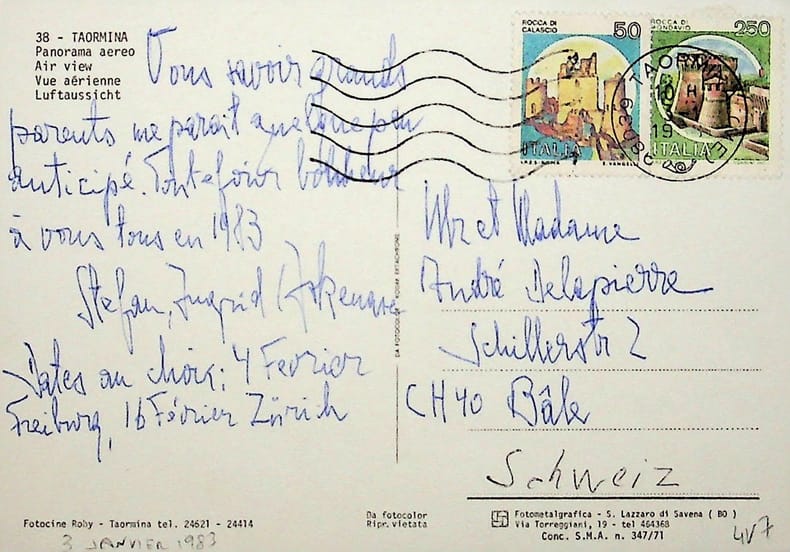 38 - TAORMINA
Panorama aereo
Air view
Vue aérienne
Luftaussicht
Vous savoir grands
parents me parait quelque peu
anticipé. Toutefois bonheur
à vous tous en 1983
Stefan, Ingrid Askenase
Dates au choix: 4 Fevrier
Freiburg, 16 Février Zürich
ROCCA DI
CALASCIO
50
ITALIA
ROCCA DI
MONDAVIO
250
ITALIA
Mr et Madame
André Delapierre
Schillerstr 2
CH 40 Bâle
Schweiz
DA FOTOCOLOR
Fotocine Roby - Taormina tel. 24621 - 24414
3 JANVIER 1983
Da fotocolor
Ripr. vietata
Fotometalgrafica - S. Lazzaro di Savena ( BO )
Via Torreggiani, 19 - tel 464368
Conc. S.M.A. n. 347/71